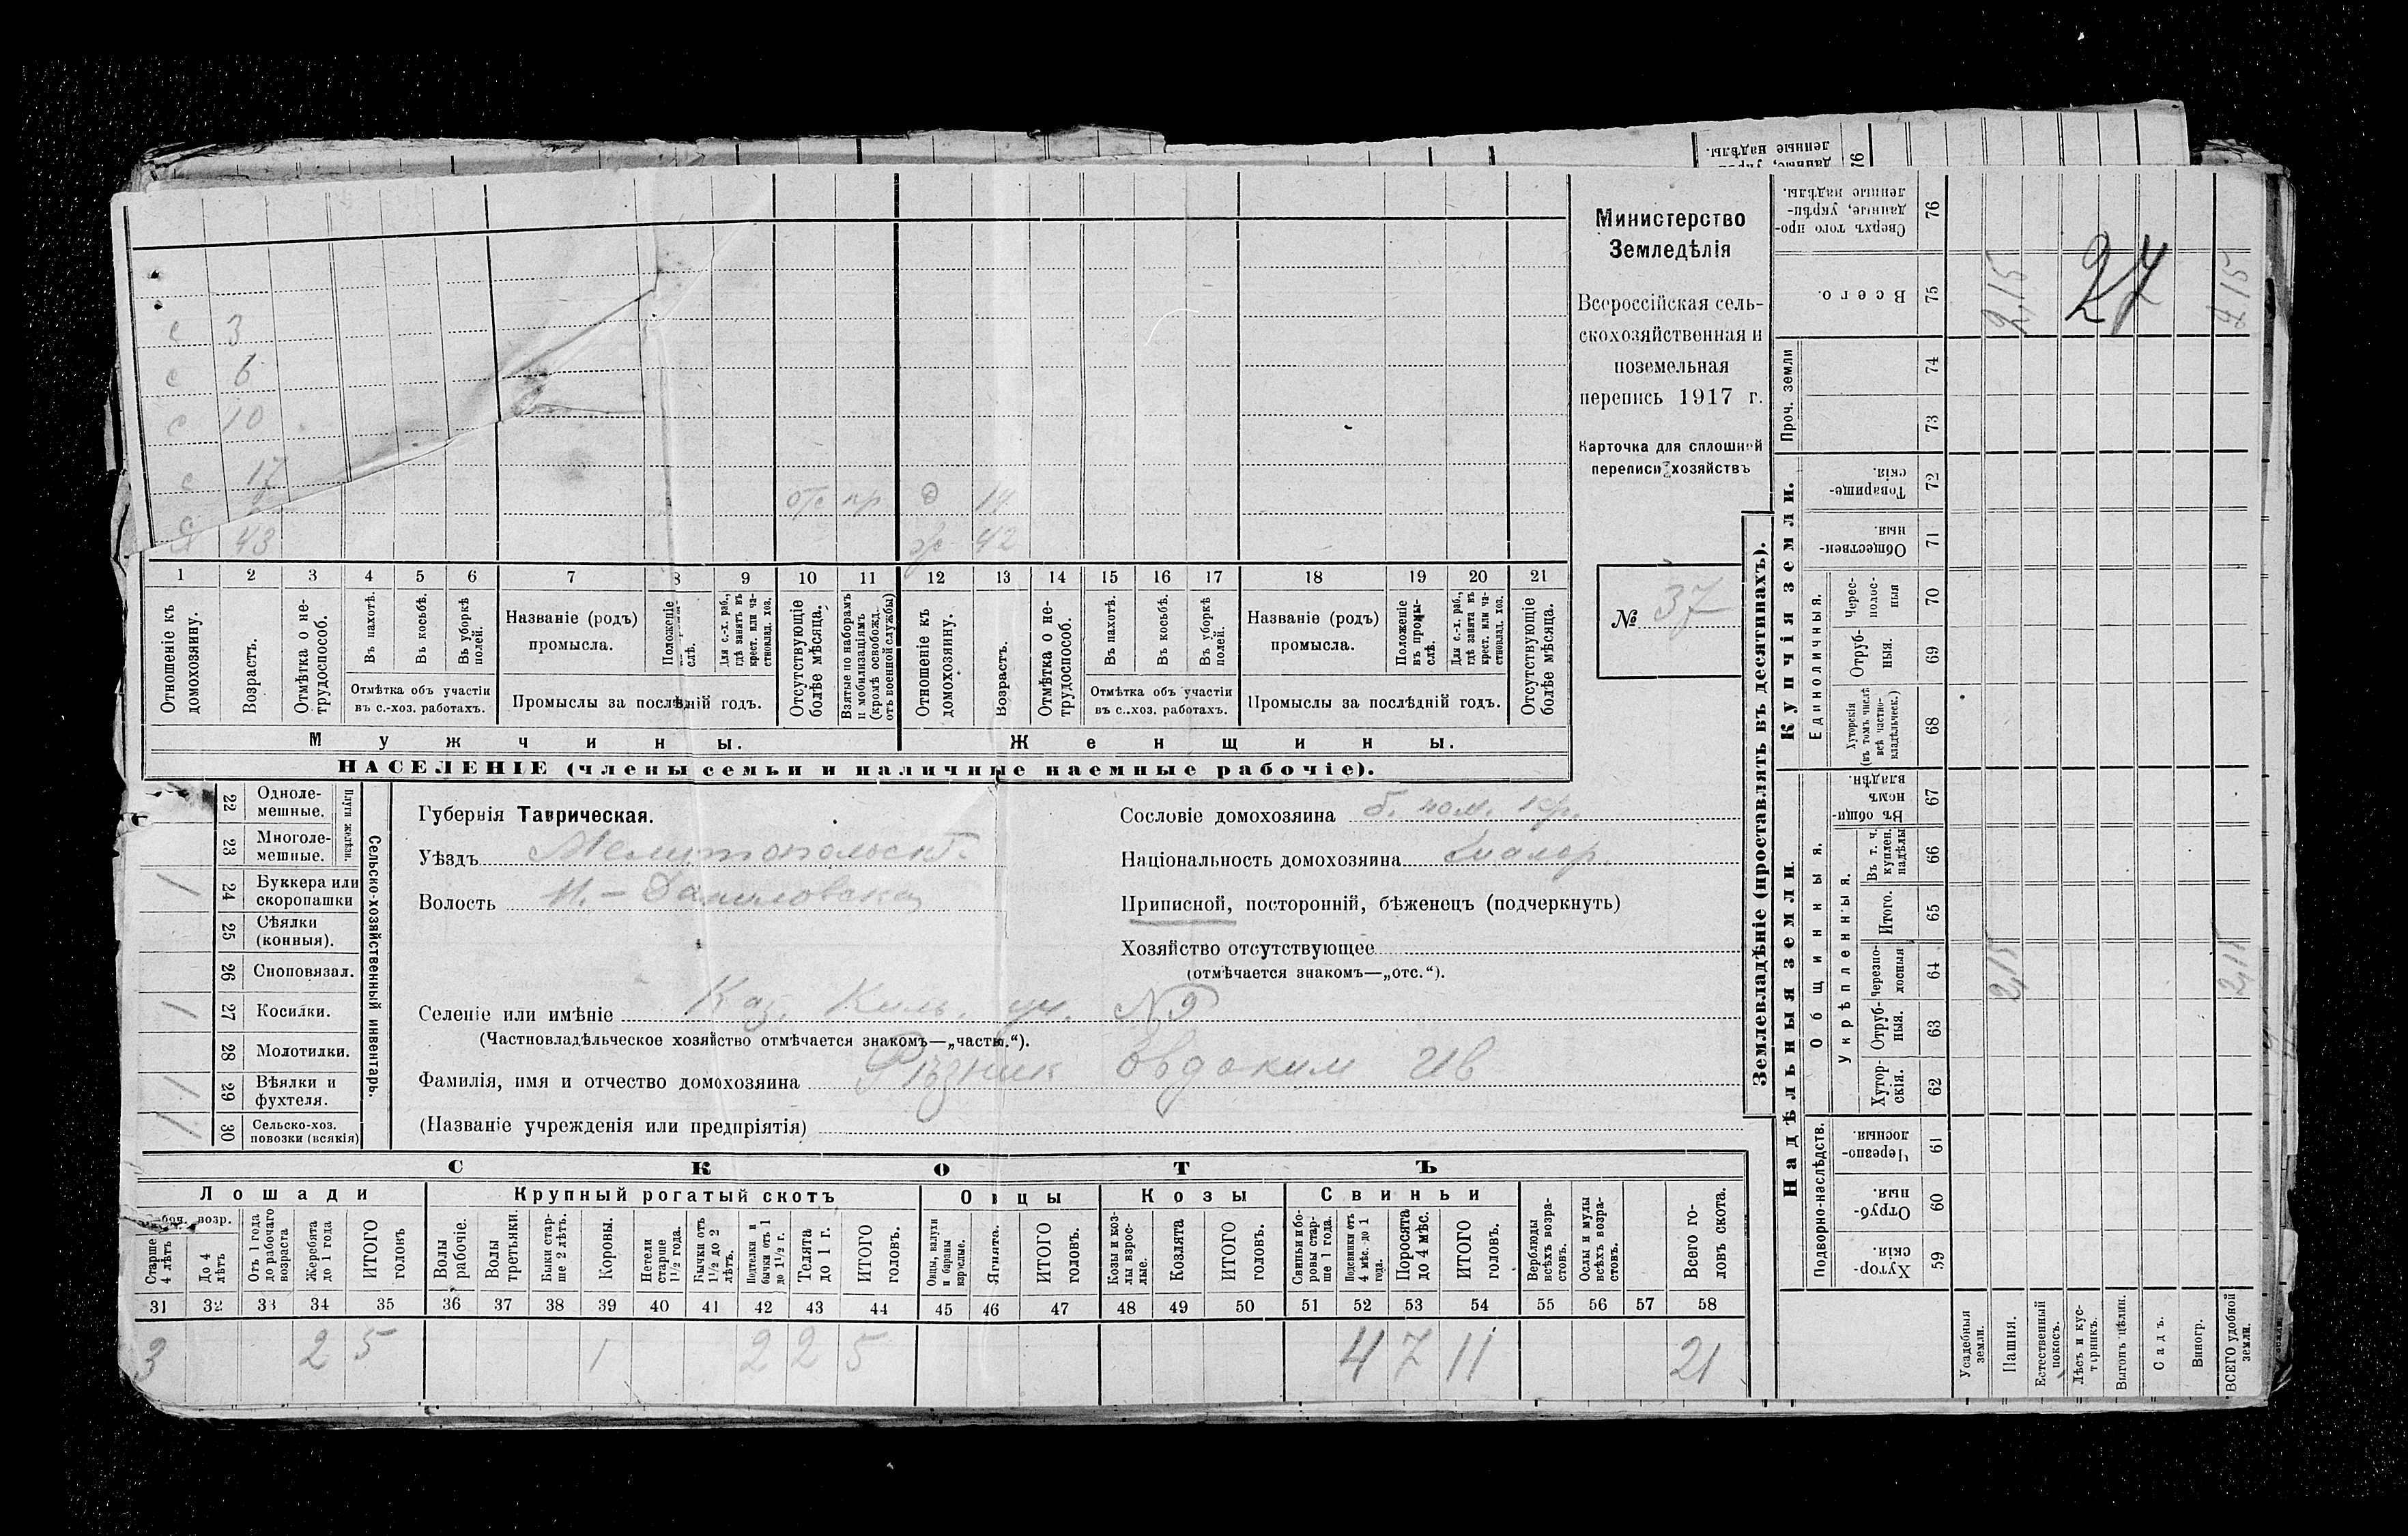 Министерство
Земледѣлія
Всероссійская сель-
скохозяйственная и
поземельная
перепись 1917 г.
Карточка для сплошной
переписи хозяйствъ
№ 37
с 3
с 6
с 10
с 17
отс пр д
43 ж 42
1 2 3 4 5 6 7 8 9 10 11 12 13 14 15 16 17 18 19 20 21
Отношеніе къ домохозяину.
Возрастъ.
Отмѣтка о не-трудоспособ.
Въ пахотѣ.
Въ косьбѣ.
Въ уборкѣ полей.
Отмѣтка объ участіи
въ с.-хоз. работахъ.
Названіе (родъ)
промысла.
Положеніе
слѣ.
Для с.-х. раб., гдѣ занятъ въ крест. или ча-стновлад. хоз.
Промыслы за послѣдній годъ.
Отсутствующіе болѣе мѣсяца.
Взятые по наборамъ и мобилизаціямъ (кромѣ освобожд. отъ военной службы)
Отношеніе къ домохозяину.
Возрастъ.
Отмѣтка о не-трудоспособ.
Въ пахотѣ.
Въ косьбѣ.
Въ уборкѣ полей.
Отмѣтка объ участіи
въ с.-хоз. работахъ.
Названіе (родъ)
промысла.
Положеніе въ промы-слѣ.
Для с.-х. раб., гдѣ занята въ крест. или ча-стновлад. хоз.
Промыслы за послѣдній годъ.
Отсутствующіе болѣе мѣсяца.
Мужчины.
Женщины.
НАСЕЛЕНІЕ (члены семьи и наличные наемные рабочіе).
22 Одноле-мешные.
23 Многоле-мешные.
Плуги желѣзн.
1 24 Буккера или скоропашки
25 Сѣялки (конныя).
26 Сноповязал.
1 27 Косилки.
28 Молотилки.
1 29 Вѣялки и фухтеля.
30 Сельско-хоз. повозки (всякія)
Сельско-хозяйственный инвентарь.
Губернія Таврическая.
Уѣздъ Мелитопольскі
Волость Н.-Даниловская
Сословіе домохозяина б. пом. кр.
Національность домохозяина
Приписной, посторонній, бѣженецъ (подчеркнуть)
Хозяйство отсутствующее
(отмѣчается знакомъ—„отс.“).
Селеніе или имѣніе Каз. уч. №9
(Частновладѣльческое хозяйство отмѣчается знакомъ—„частн.“).
Фамилія, имя и отчество домохозяина Рѣзник Овдоким Ив
(Названіе учрежденія или предпріятія)
СКОТЪ
Лошади
Крупный рогатый скотъ
Овцы
Козы
Свиньи
возр.
Старше 4 лѣтъ
До 4 лѣтъ
Отъ 1 года до рабочаго возраста
Жеребята до 1 года
ИТОГО головъ
Волы рабочіе.
Волы третьяки.
Быки стар-ше 2 лѣтъ.
Коровы.
Нетели старше 1½ года.
Бычки отъ 1½ до 2 лѣтъ.
Подтелки и бычки отъ 1 до 1½ г.
Телята до 1 г.
ИТОГО головъ.
Овцы, валухи и бараны взрослые.
Ягнята.
ИТОГО головъ.
Козы и коз-лы взрос-лые.
Козлята
ИТОГО головъ.
Свиньи и бо-ровы стар-ше 1 года.
Подсвинки отъ 4 мѣс. до 1 года.
Поросята до 4 мѣс.
ИТОГО головъ.
Верблюды всѣхъ возра-стовъ.
Ослы и мулы всѣхъ возра-стовъ.
Всего го-ловъ скота.
31 32 33 34 35 36 37 38 39 40 41 42 43 44 45 46 47 48 49 50 51 52 53 54 55 56 57 58
3 2 5 1 2 2 5 4 7 11 21
Землевладѣніе (проставлять въ десятинахъ).
Купчія земли.
Надѣльныя земли.
Проч. земли
Единоличныя.
Общинныя.
Укрѣпленныя.
Подворно-наслѣдств.
Сверхъ того про-данные, укрѣп-ленные надѣлы. 76
Всего. 75
74
73
Товарище-скія. 72
Обществен-ныя. 71
Черес-полос-ныя 70
Отруб-ныя. 69
Хуторскія (въ томъ числѣ всѣ частно-владѣльческ.) 68
Въ общи-номъ владѣн. 67
Въ т. ч. куплен. надѣлы 66
Итого. 65
Черезпо-лосныя 64
Отруб-ныя. 63
Хутор-скія. 62
Черезпо-лосныя 61
Отруб-ныя. 60
Хутор-скія. 59
Усадебныя земли.
Пашня.
Естественный покосъ.
Лѣсъ и кус-тарникъ.
Выгонъ цѣлин.
Садъ.
Виногр.
ВСЕГО удобной земли.
2,15
27
2,15
2,15
2,15